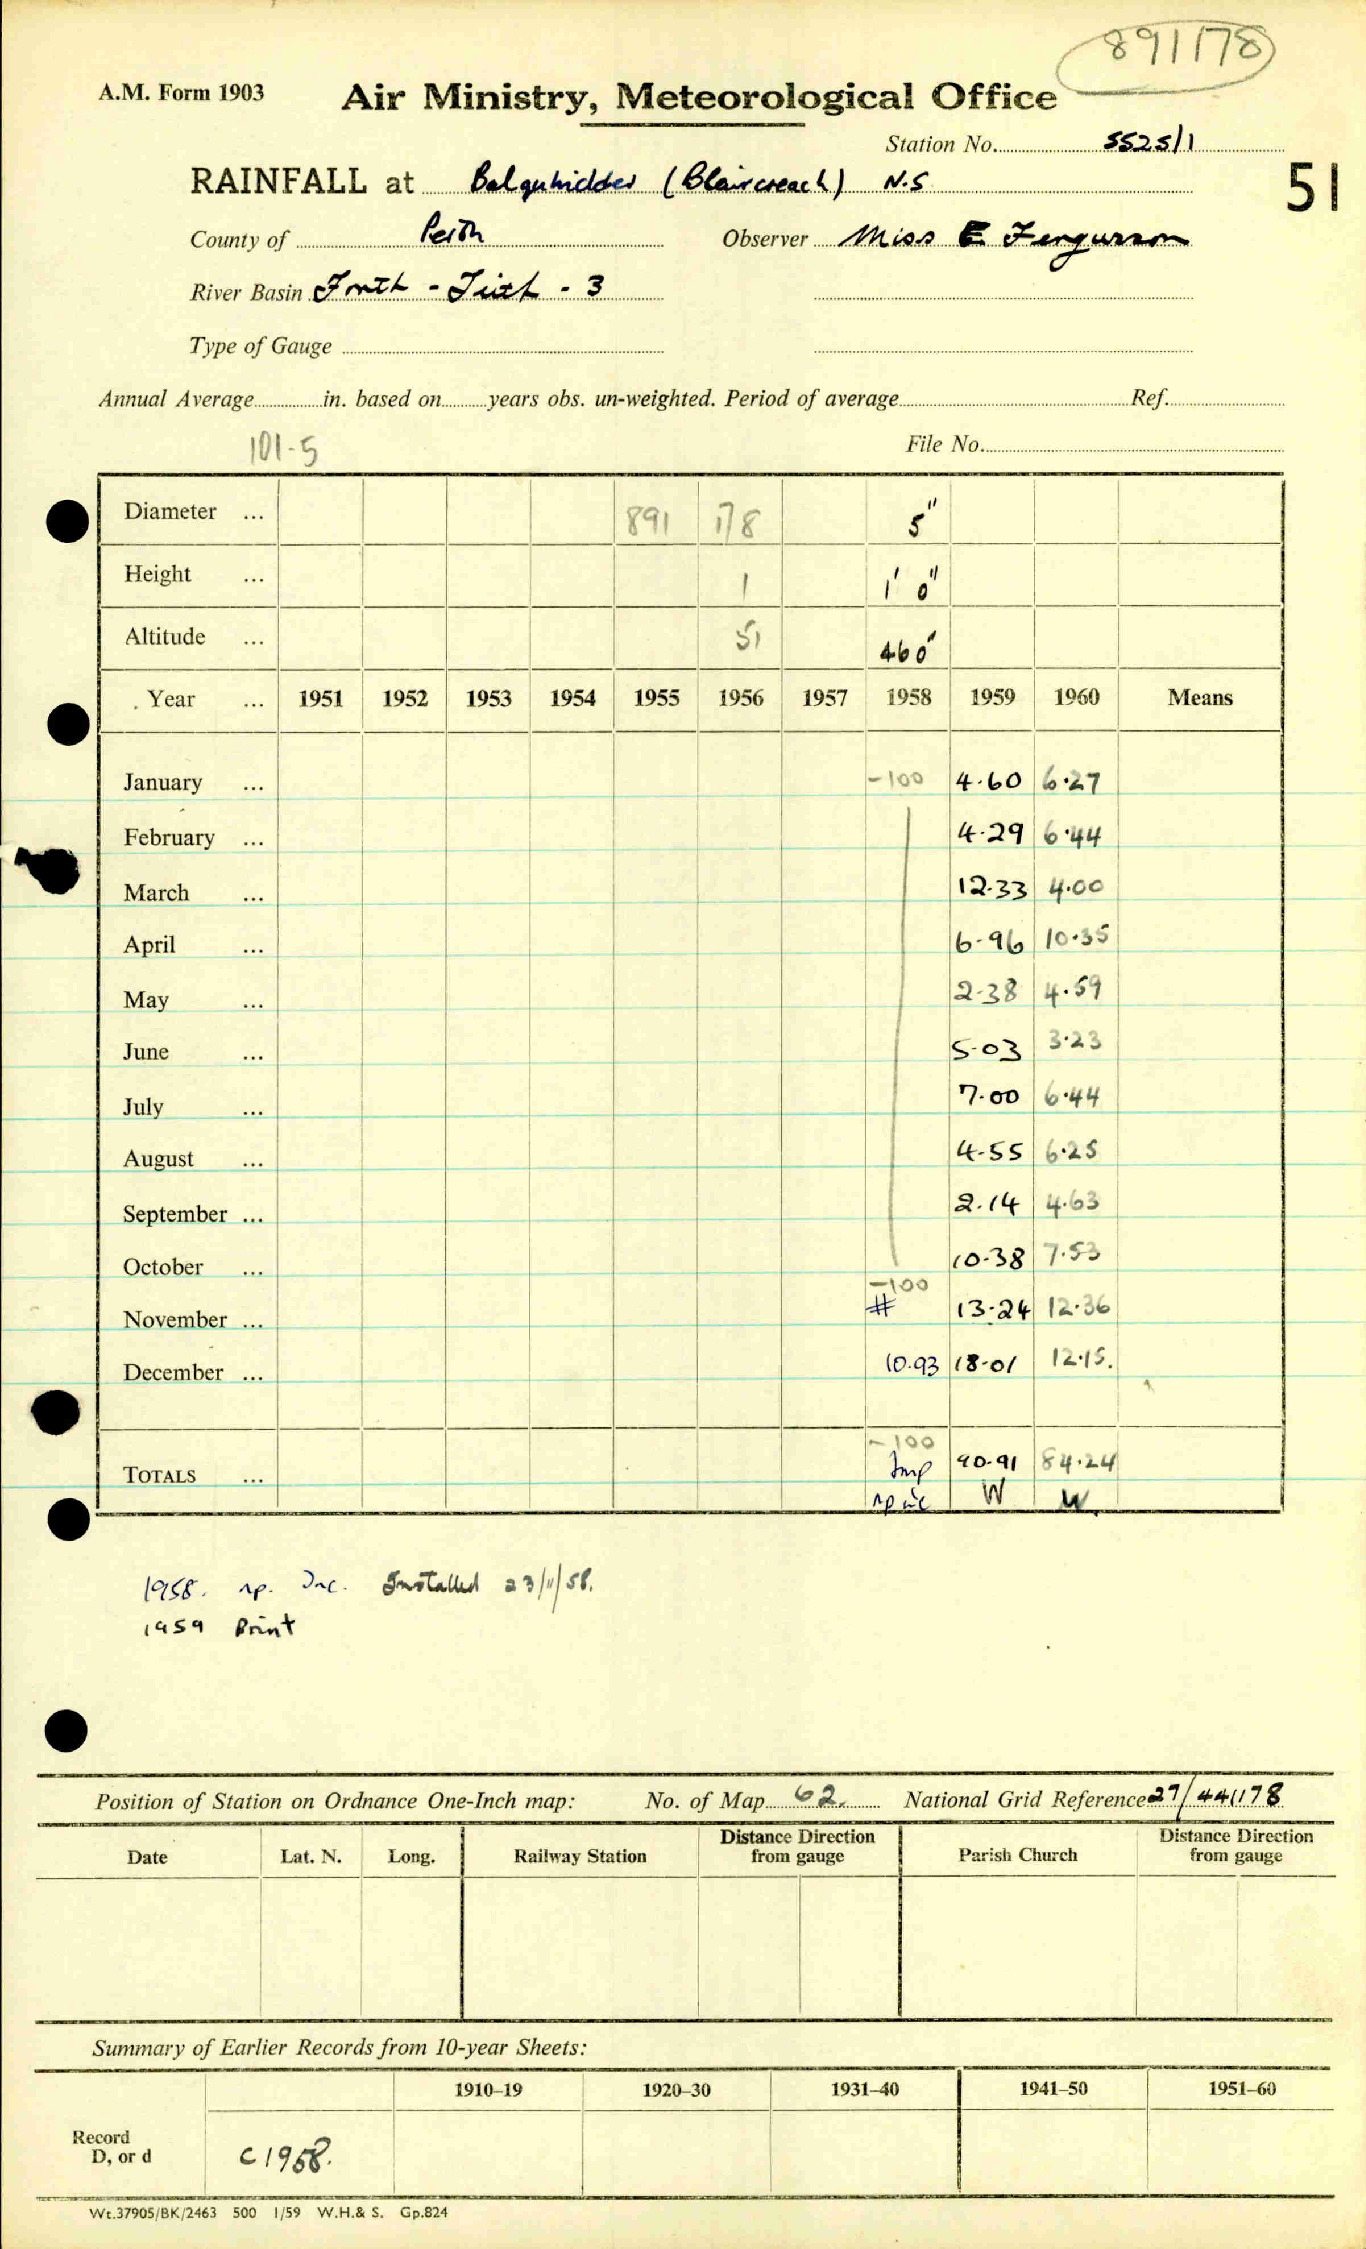 891178
A.M. Form 1903
Air Ministry, Meteorological Office
Station No. 5525/1
51
RAINFALL at Balquhidder (Blaircreach) N.S
County of Perth Observer Miss E Fergusson
River Basin Forth - Teith - 3
Type of Gauge
Annual Average in. based on years obs. un-weighted. Period of average Ref.
101-5 File No.
Diameter ... 891 178 5"
Height ... 1 1' 0"
Altitude ... 51 460'
Year ... 1951 1952 1953 1954 1955 1956 1957 1958 1959 1960 Means
January ... -100 4.60 6.27
February ... 4.29 6.44
March ... 12.33 4.00
April ... 6.96 10.35
May ... 2.38 4.59
June ... 5.03 3.23
July ... 7.00 6.44
August ... 4.55 6.25
September ... 2.14 4.63
October ... 10.38 7.53
-100
November ... # 13.24 12.36
December ... 10.93 18.01 12.15.
-100
TOTALS ... Imp 90.91 84.24
np inc W W
1958. np. Inc. Installed 23/11/58.
1959 Print
Position of Station on Ordnance One-Inch map: No. of Map 62. National Grid Reference 27/441178
Date Lat. N. Long. Railway Station Distance Direction from gauge Parish Church Distance Direction from gauge
Summary of Earlier Records from 10-year Sheets:
1910–19 1920–30 1931–40 1941–50 1951–60
Record
D, or d C1958.
Wt.37905/BK/2463 500 1/59 W.H.& S. Gp.824